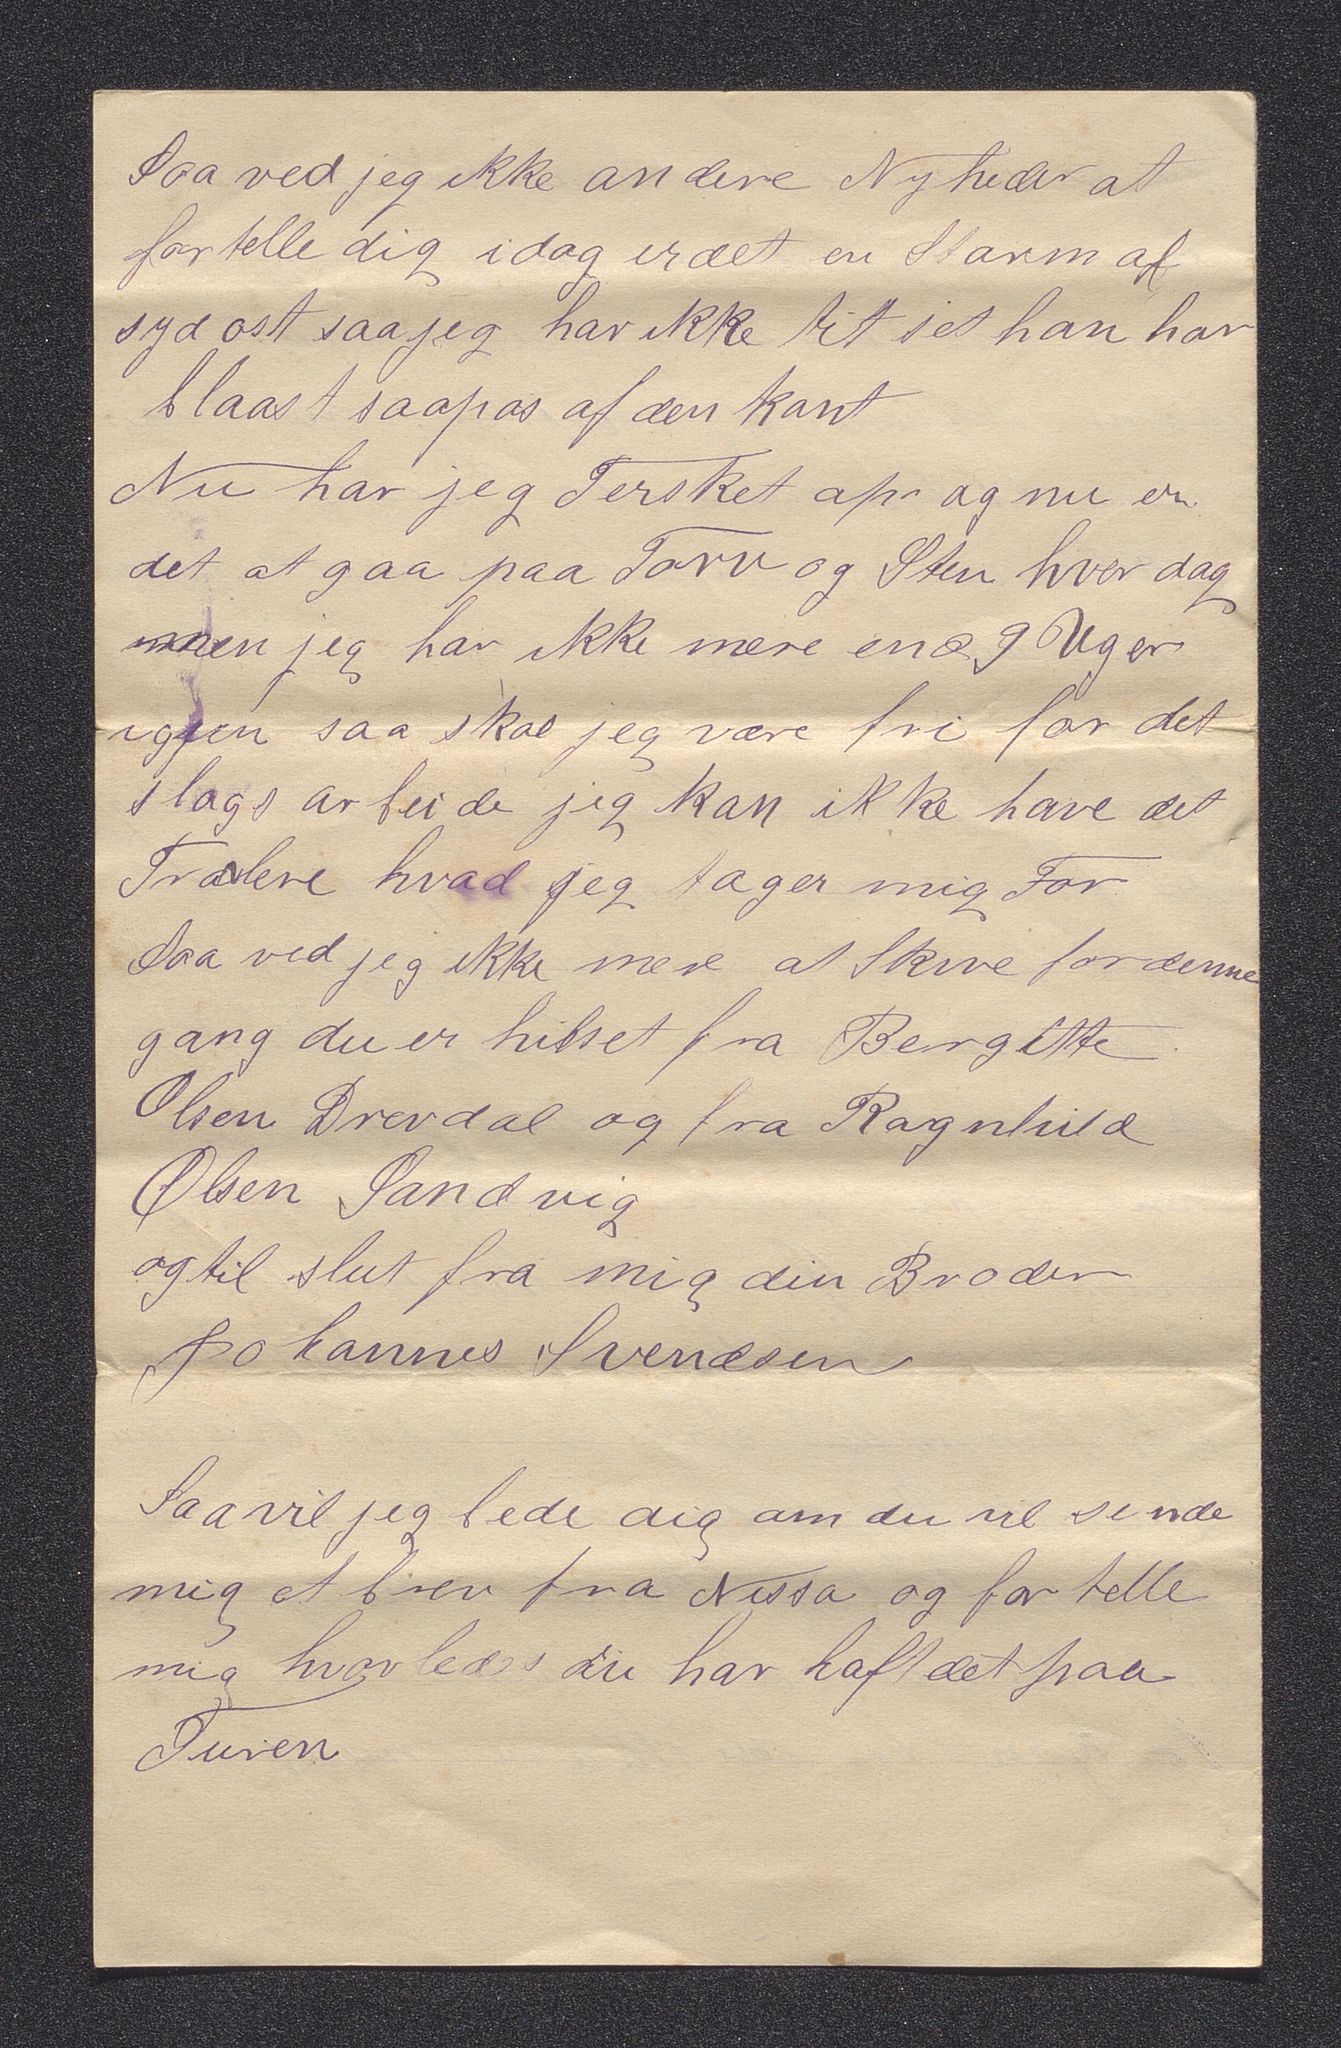 Saa ved jeg ikke andere Nyheder at
fortelle dig idag erdet en Starm af
syd ost saa jeg har ikke tit set han har
blaast saapas af den kant
Nu har jeg Tersket ap og nu er
det at gaa paa Torv og Sten hver dag
men jeg har ikke mere end 9 Uger
igjen saa skal jeg være fri for det
slags arbeide jeg kan ikke have det
hvad jeg tager mig For
Saa ved jeg ikke mere at Skrive for denne
gang du er hilset fra Bergitte
Olsen Drevdal og fra Ragnhild
Olsen Sandvig
og til slut fra mig din Broder
Johannes Svendsen
Saa vil jeg bede dig om du vil sende
mig et brev fra Nissa og for telle
mig hvorleds du har haft det paa
Turen